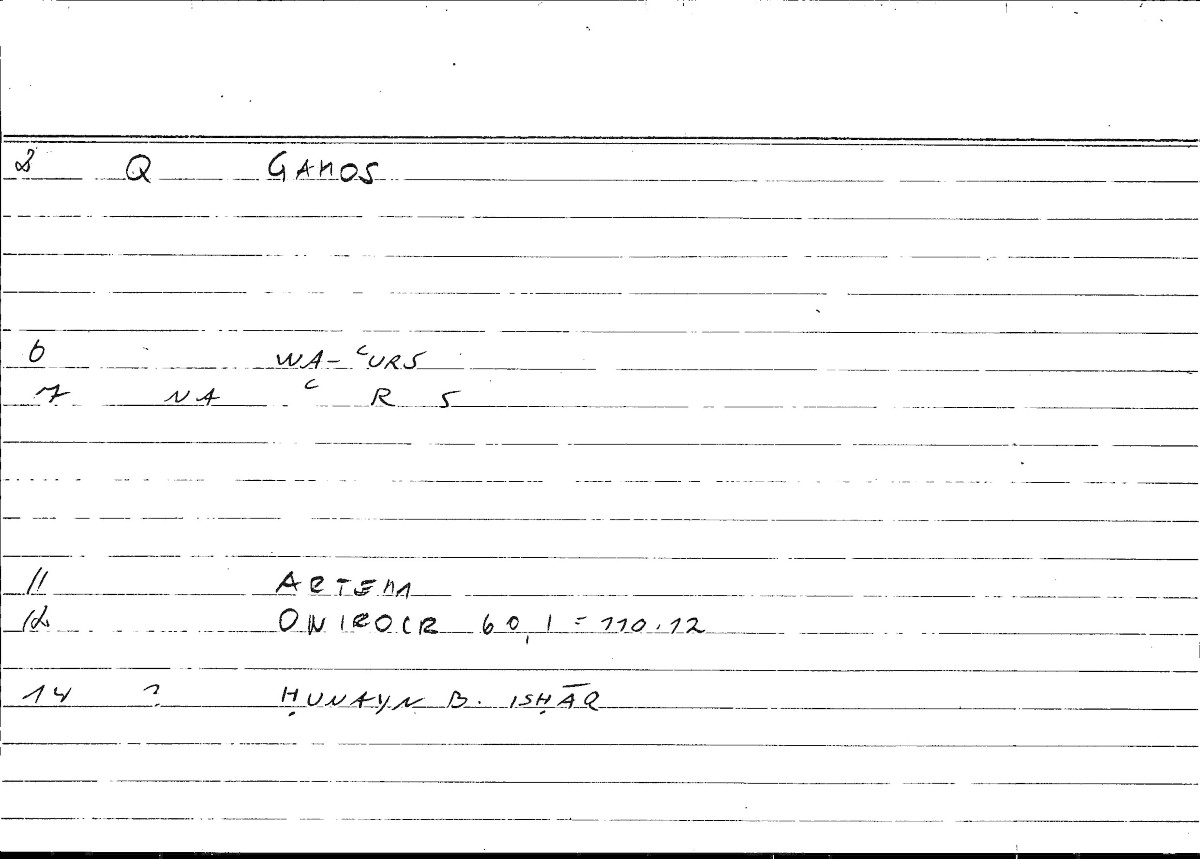 2 Q GAMOS
6 WA-ʿURS
7 NA ʿ R S
11 ARTEM
12 ONIROCR 60,1 = 110.12
14 ? ḤUNAYN B. ISḤĀQ